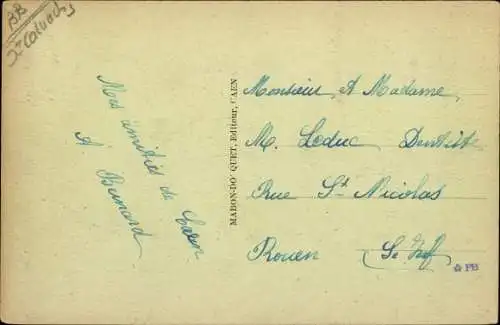 BB
Calvados
Mes amitiés de Caen
A Bernard
MABON-DO QUET, Editeur, CAEN
Monsieur A Madame
M. Leduc Dentiste
Rue St Nicolas
Rouen
PB